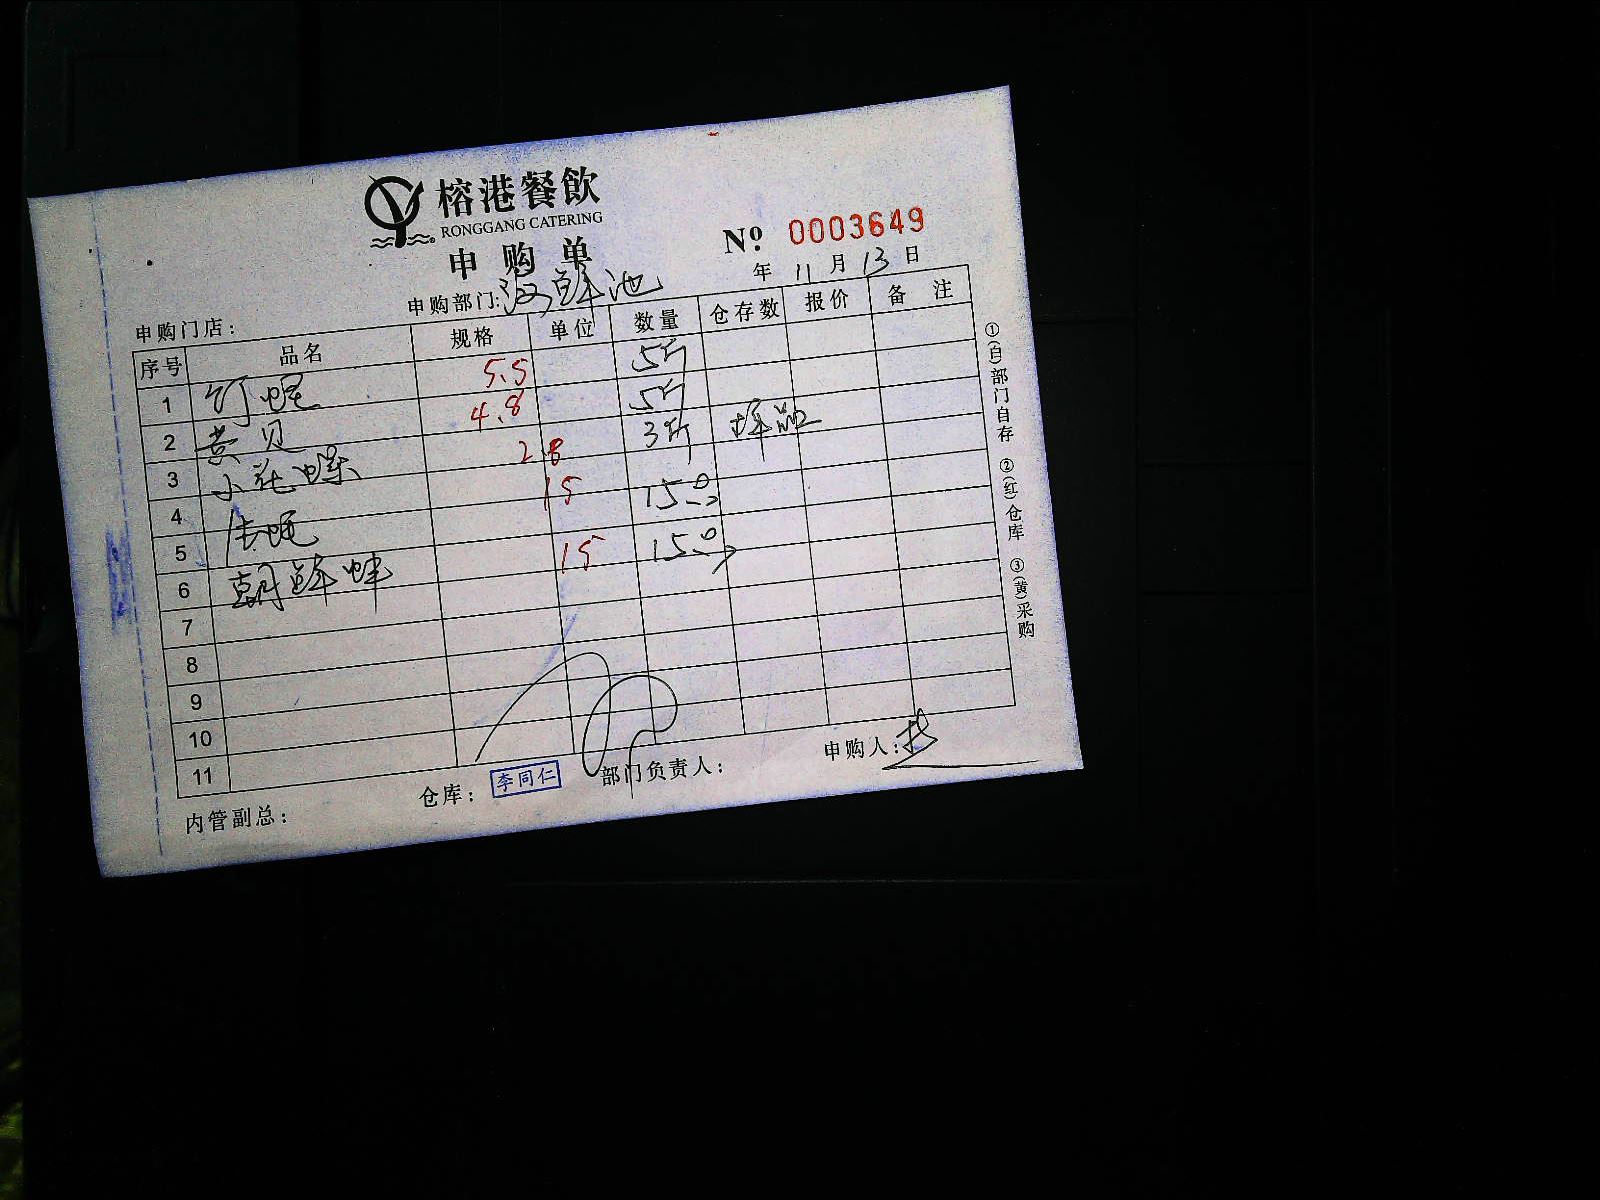 榕港餐飲
RONGGANG CATERING
申购单
Nº 0003649
年 11 月 13 日
申购门店: 申购部门: 海鲜池
序号 品名 规格 单位 数量 仓存数 报价 备注
1 5.5 5斤
2 黄贝 4.8 5斤
3 小花螺 28 3斤
4 15 15
5 生蚝 15 15
6 朝鲜蚌
7
8
9
10
11
内管副总: 仓库: 李同仁 部门负责人: 申购人:
①(白)部门自存 ②(红)仓库 ③(黄)采购